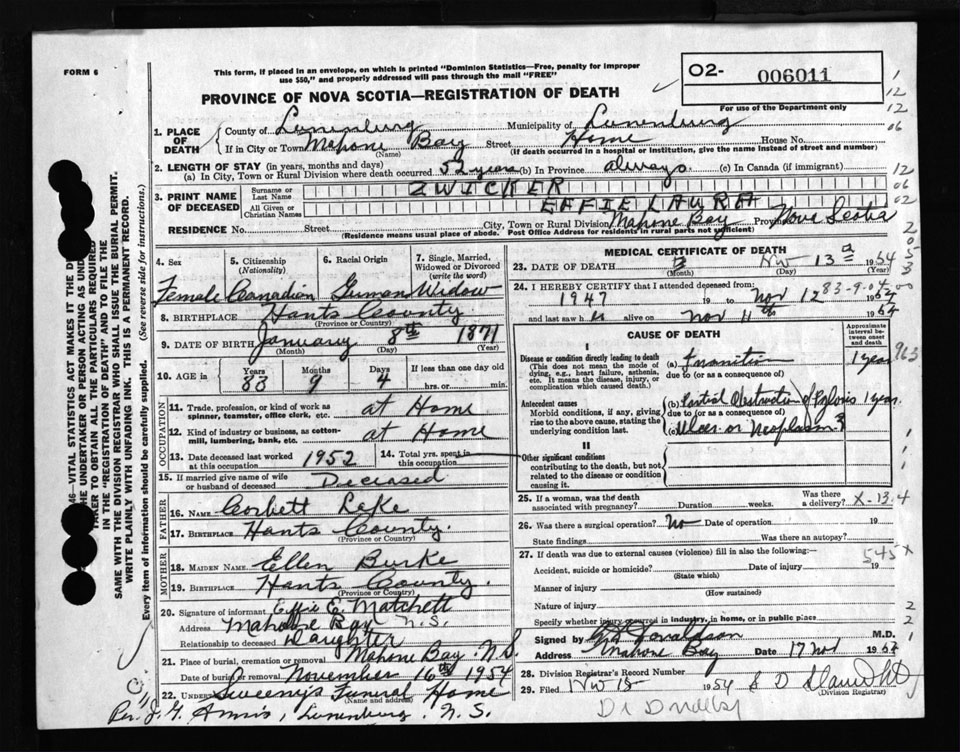 FORM 6
This form, if placed in an envelope, on which is printed "Dominion Statistics—Free, penalty for improper
use $50," and properly addressed will pass through the mail "FREE"
O2- 006011
For use of the Department only
PROVINCE OF NOVA SCOTIA—REGISTRATION OF DEATH
1. PLACE OF DEATH
County of Lunenburg Municipality of Lunenburg
If in City or Town Mahone Bay Street Home House No.
(Name) (If death occurred in a hospital or institution, give the name instead of street and number)
2. LENGTH OF STAY (in years, months and days)
(a) In City, Town or Rural Division where death occurred 52 years (b) In Province always (c) In Canada (if immigrant)
3. PRINT NAME OF DECEASED
Surname or Last Name ZWICKER
All Given or Christian Names EFFIE LAURA
RESIDENCE No. Street City, Town or Rural Division Mahone Bay Province Nova Scotia
(Residence means usual place of abode. Post Office Address for residents in rural parts not sufficient)
4. Sex Female
5. Citizenship (Nationality) Canadian
6. Racial Origin German
7. Single, Married, Widowed or Divorced (write the word) Widow
8. BIRTHPLACE Hants County
(Province or Country)
9. DATE OF BIRTH January 8th 1871
(Month) (Day) (Year)
10. AGE in Years 83 Months 9 Days 4 If less than one day old
hrs. or min.
OCCUPATION
11. Trade, profession, or kind of work as spinner, teamster, office clerk, etc. at Home
12. Kind of industry or business, as cotton-mill, lumbering, bank, etc. at Home
13. Date deceased last worked at this occupation 1952
14. Total yrs. spent in this occupation
15. If married give name of wife or husband of deceased Deceased
FATHER
16. NAME Corbett Lake
17. BIRTHPLACE Hants County.
(Province or Country)
MOTHER
18. MAIDEN NAME Ellen Burke
19. BIRTHPLACE Hants County.
(Province or Country)
20. Signature of informant Effie E. Matchett
Address Mahone Bay N.S.
Relationship to deceased Daughter
21. Place of burial, cremation or removal Mahone Bay. N.S.
Date of burial or removal November 16th 1954
22. UNDERT Sweeny's Funeral Home
(Name and address)
Per. J. G. , Lunenburg. N.S.
MEDICAL CERTIFICATE OF DEATH
23. DATE OF DEATH Nov 13th 1954
(Month) (Day) (Year)
24. I HEREBY CERTIFY that I attended deceased from:
1947 19 to Nov 12 1954
and last saw h alive on Nov 11 1954
83-9-04-00
CAUSE OF DEATH
Approximate interval between onset and death
I
Disease or condition directly leading to death
(This does not mean the mode of dying, e.g., heart failure, asthenia, etc. It means the disease, injury, or complication which caused death.)
(a) Inanition 1 year
due to (or as a consequence of)
Antecedent causes
Morbid conditions, if any, giving rise to the above cause, stating the underlying condition last.
(b) Partial Obstruction of Pylorus 1 year.
due to (or as a consequence of)
(c) Ulcer or Neoplasm?
II
Other significant conditions
contributing to the death, but not related to the disease or condition causing it.
25. If a woman, was the death associated with pregnancy? Duration weeks. Was there a delivery? X-13.4
26. Was there a surgical operation? No Date of operation 19
State findings Was there an autopsy?
27. If death was due to external causes (violence) fill in also the following:—
545 x
Accident, suicide or homicide? Date of injury 19
(State which)
Manner of injury
(How sustained)
Nature of injury
Specify whether injury occurred in industry, in home, or in public place
Signed by Donaldson M.D.
Address Mahone Bay Date 17 Nov 1954
28. Division Registrar's Record Number
29. Filed Nov 18 1954
(Division Registrar)
46—VITAL STATISTICS ACT MAKES IT THE D
THE UNDERTAKER OR PERSON ACTING AS UND
TAKER TO OBTAIN ALL THE PARTICULARS REQUIRED
IN THE "REGISTRATION OF DEATH" AND TO FILE THE
SAME WITH THE DIVISION REGISTRAR WHO SHALL ISSUE THE BURIAL PERMIT.
WRITE PLAINLY WITH UNFADING INK. THIS IS A PERMANENT RECORD.
Every item of information should be carefully supplied. (See reverse side for instructions.)
1
12
12
06
12
06
02
2
0
5
3
963
1
1
1
1
2
2